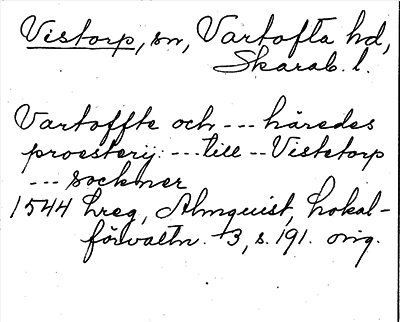 Vistorp, sn, Vartofta hd,
Skarab. l.
Vartoffte och --- häredes
proesterij: --- till -- Vistetorp
--- sockner
1544 hreg, Almquist, Lokal-
förvaltn. 3, s. 191. orig.